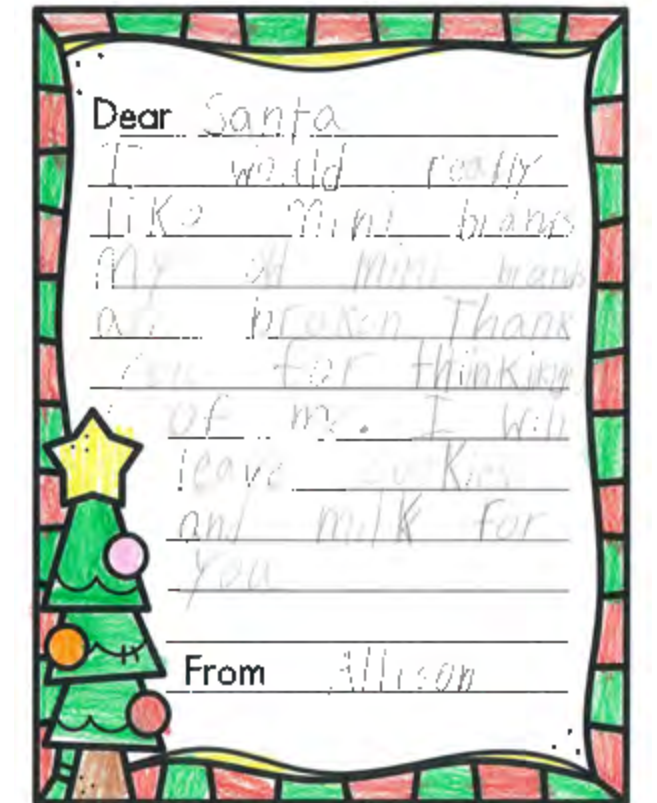 Dear Santa
I would really
like mini brands
My old mini brands
are broken Thank
you for thinking
of me. I will
leave cookies
and milk for
you
From Allison